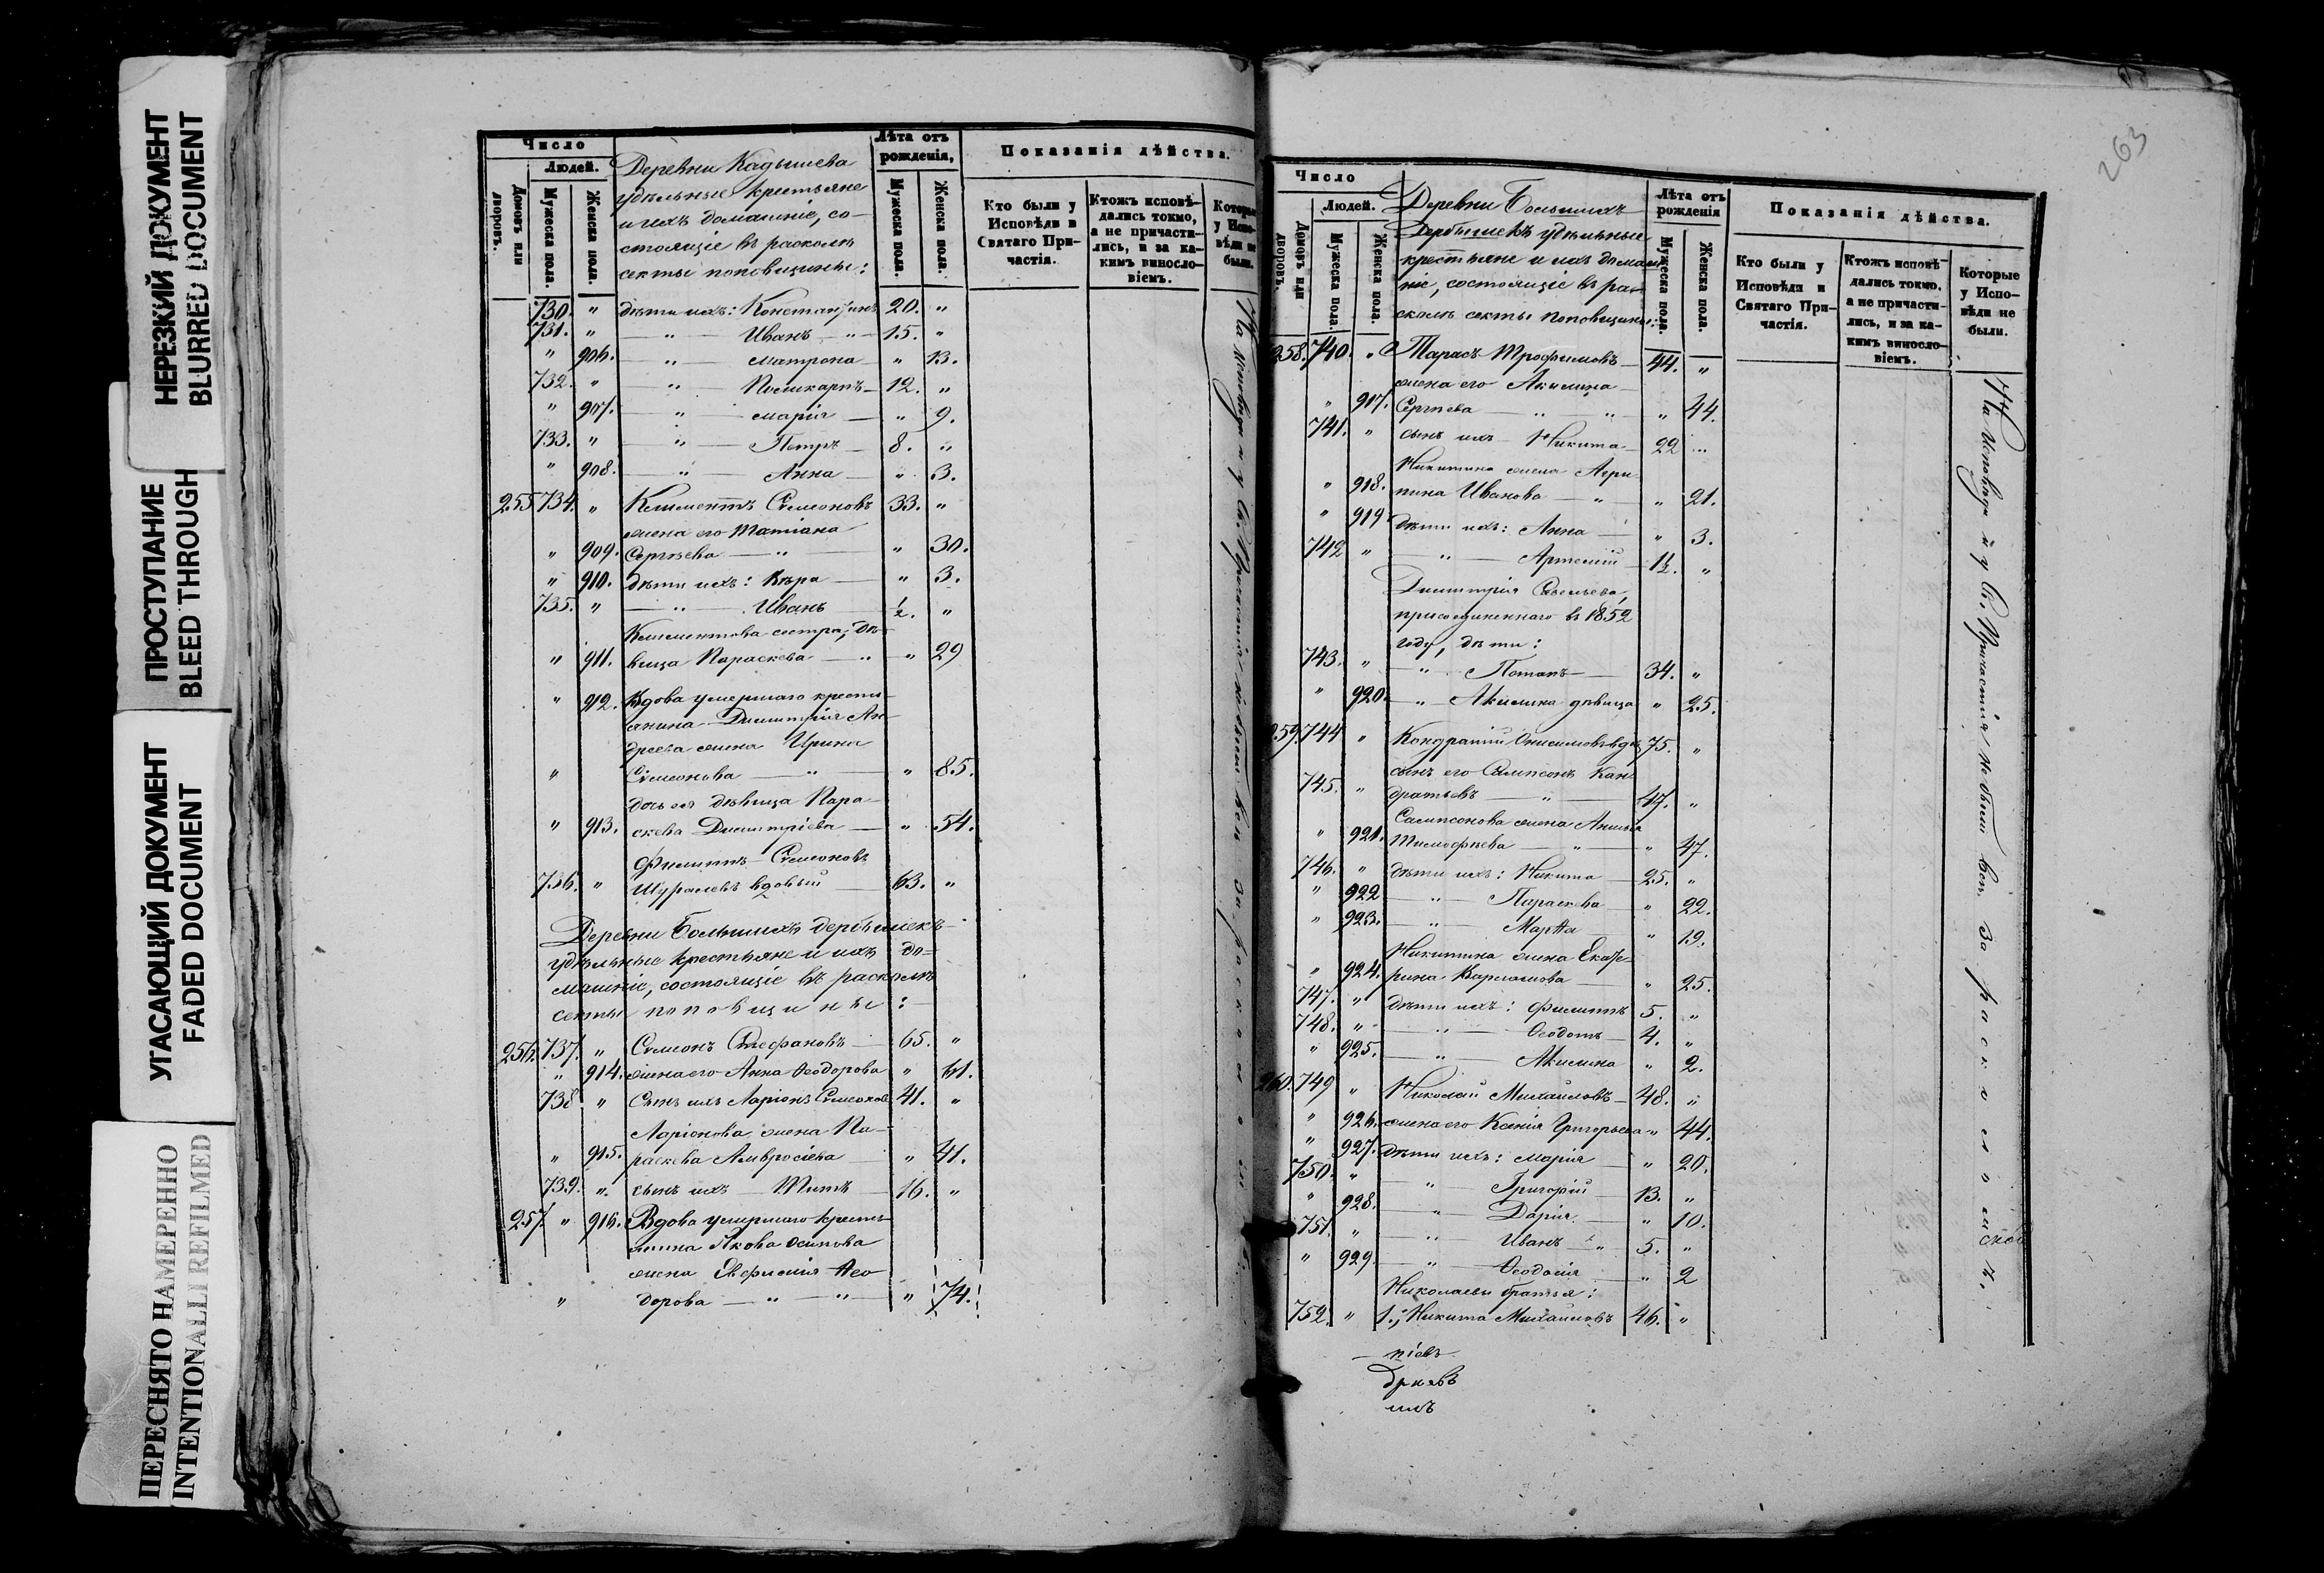 НЕРЕЗКИЙ ДОКУМЕНТ
BLURRED DOCUMENT
ПРОСТУПАНИЕ
BLEED THROUGH
УГАСАЮЩИЙ ДОКУМЕНТ
FADED DOCUMENT
ПЕРЕСНЯТО НАМЕРЕННО
INTENTIONALLI REFILMED
Число
Людей.
Домовъ или дворовъ.
Мужеска пола.
Женска пола.
Деревни Кадышева
удѣльные крестьяне
и ихъ домашніе, со-
стоящіе въ расколѣ
секты поповщины:
Лѣта отъ рожденія,
Мужеска пола.
Женска пола.
Показанія дѣйства.
Кто были у Исповѣди и Святаго При-частія.
Ктожъ исповѣ-дались токмо, а не причасти-лись, и за ка-кимъ винословіемъ.
Которые у Испо-вѣди не были.
730. " дѣти ихъ: Константинъ 20. "
731. " — " — Иванъ — " — 15. "
" 906. " Матрона — " 13.
732. " — " — Поликарпъ — 12. "
" 907. — " — Марія — " 9.
733. " — " — Петръ — 8. "
" 908. — " — Анна — " 3.
255 734. " Климентъ Симеоновъ 33. "
жена его Татіана
" 909. Сергѣева — " — " 30.
" 910. дѣти ихъ: Вѣра — " 3.
735. " — " — Иванъ 1/2. "
Климентова сестра, дѣ-
" 911. вица Параскева — " — " 29
" 912. Вдова умершаго кресть-
янина Димитрія Ан-
дреева жена Ирина
" Симеонова — " — " 85.
дочь ея дѣвица Пара-
" 913. скева Димитріева — " 54.
Филиппъ Симеоновъ
736. " Шуралевъ вдовый — 63. "
Деревни Большихъ дербышекъ
удѣльные крестьяне и ихъ до-
машніе, состоящіе въ расколѣ
секты поповщины:
256. 737. " Симеонъ Стефановъ — 65. "
" 914. жена его Анна Ѳеодорова " 61.
738. " Сынъ ихъ Ларіонъ Симеоновъ 41. "
Ларіонова жена Па-
" 915. раскева Амвросіева — " 41.
739. " сынъ ихъ — Титъ — 16. "
257 " 916. Вдова умершаго кресть-
янина Якова Осипова
жена Евфимія Ѳео-
" дорова — " — " — " 74.
На Исповѣди и у Св. Причастія не были вси за расколомъ.
263
Число
Людей.
Домовъ или дворовъ.
Мужеска пола.
Женска пола.
Деревни Большихъ
Дербышекъ удѣльные
крестьяне и ихъ домаш-
ніе, состоящіе въ ра-
сколѣ секты поповщины:
Лѣта отъ рожденія
Мужеска пола.
Женска пола.
Показанія дѣйства.
Кто были у Исповѣди и Святаго При-частія.
Ктожъ исповѣ-дались токмо, а не причасти-лись, и за ка-кимъ винословіемъ.
Которые у Испо-вѣди не были.
258. 740. " Тарасъ Трофимовъ — 44. "
жена его Акилина
" 917. Сергѣева — " " " 44.
741. " сынъ ихъ — Никита — 22 "
Никитина жена Агри-
" 918. пина Иванова — " " 21.
" 919 дѣти ихъ: Анна — " 3.
742 " — " — Артемій — 1 1/2. "
Димитрія Савельева,
присоединеннаго въ 1852
году, дѣти:
743. " — " — Потапъ — 34. "
" 920. — " — Акилина дѣвица " 25.
259. 744 " Кондратій Онисимовъ вдов. 75. "
сынъ его Сампсонъ Кон-
745. " дратьевъ — " — 47. "
Сампсонова жена Анисья
" 921. Тимофѣева — " — " 47.
746. " дѣти ихъ: Никита — 25. "
" 922 — " — Параскева — " 22.
" 923. — " — Марѳа — " 19.
Никитина жена Екате-
" 924. рина Варламова — " 25.
747. " дѣти ихъ: Филиппъ 5. "
748. " — " — Ѳеодотъ — 4. "
" 925. — " — Акилина " 2.
260. 749 " Николай Михайловъ — 48. "
" 926. жена его Ксенія Григорьева " 44.
" 927. дѣти ихъ: Марія — " 20.
750. " — " — Григорій — 13. "
" 928. — " — Дарія — " 10.
751. " — " — Иванъ — " 5. "
" 929. — " — Ѳеодосія — " 2
Николаевы братья:
752. " 1., Никита Михайловъ 46. "
На Исповѣди и у Св. Причастія не были вси за расколомъ.